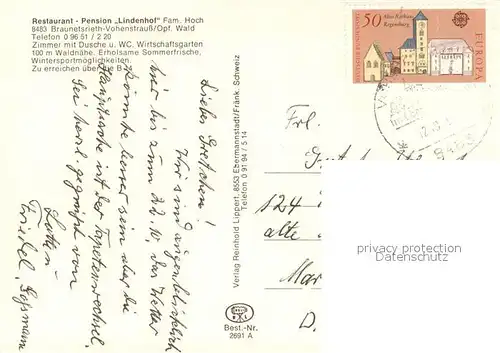 Restaurant - Pension „Lindenhof" Fam. Hoch
8483 Braunetsrieth-Vohenstrauß/Opf. Wald
Telefon 0 96 51 / 2 20
Zimmer mit Dusche u. WC, Wirtschaftsgarten
100 m Waldnähe. Erholsame Sommerfrische,
Wintersportmöglichkeiten.
Zu erreichen über die B
Liebes Gretchen!
Wir sind augenblicklich
hier bis zum 22.10., das Wetter
könnte besser sein aber die
Hauptsache ist der Tapetenwechsel.
Sei herzl. gegrüßt von
Lotti u.
Friedel
Verlag Reinhold Lippert, 8553 Ebermannstadt/Fränk. Schweiz
Telefon 0 91 94 / 5 14
Best.-Nr.
2691 A
50
Altes Rathaus
Regensburg
EUROPA
DEUTSCHE BUNDESPOST
Frl.
124
alte
Mar
D.
privacy protection
Datenschutz